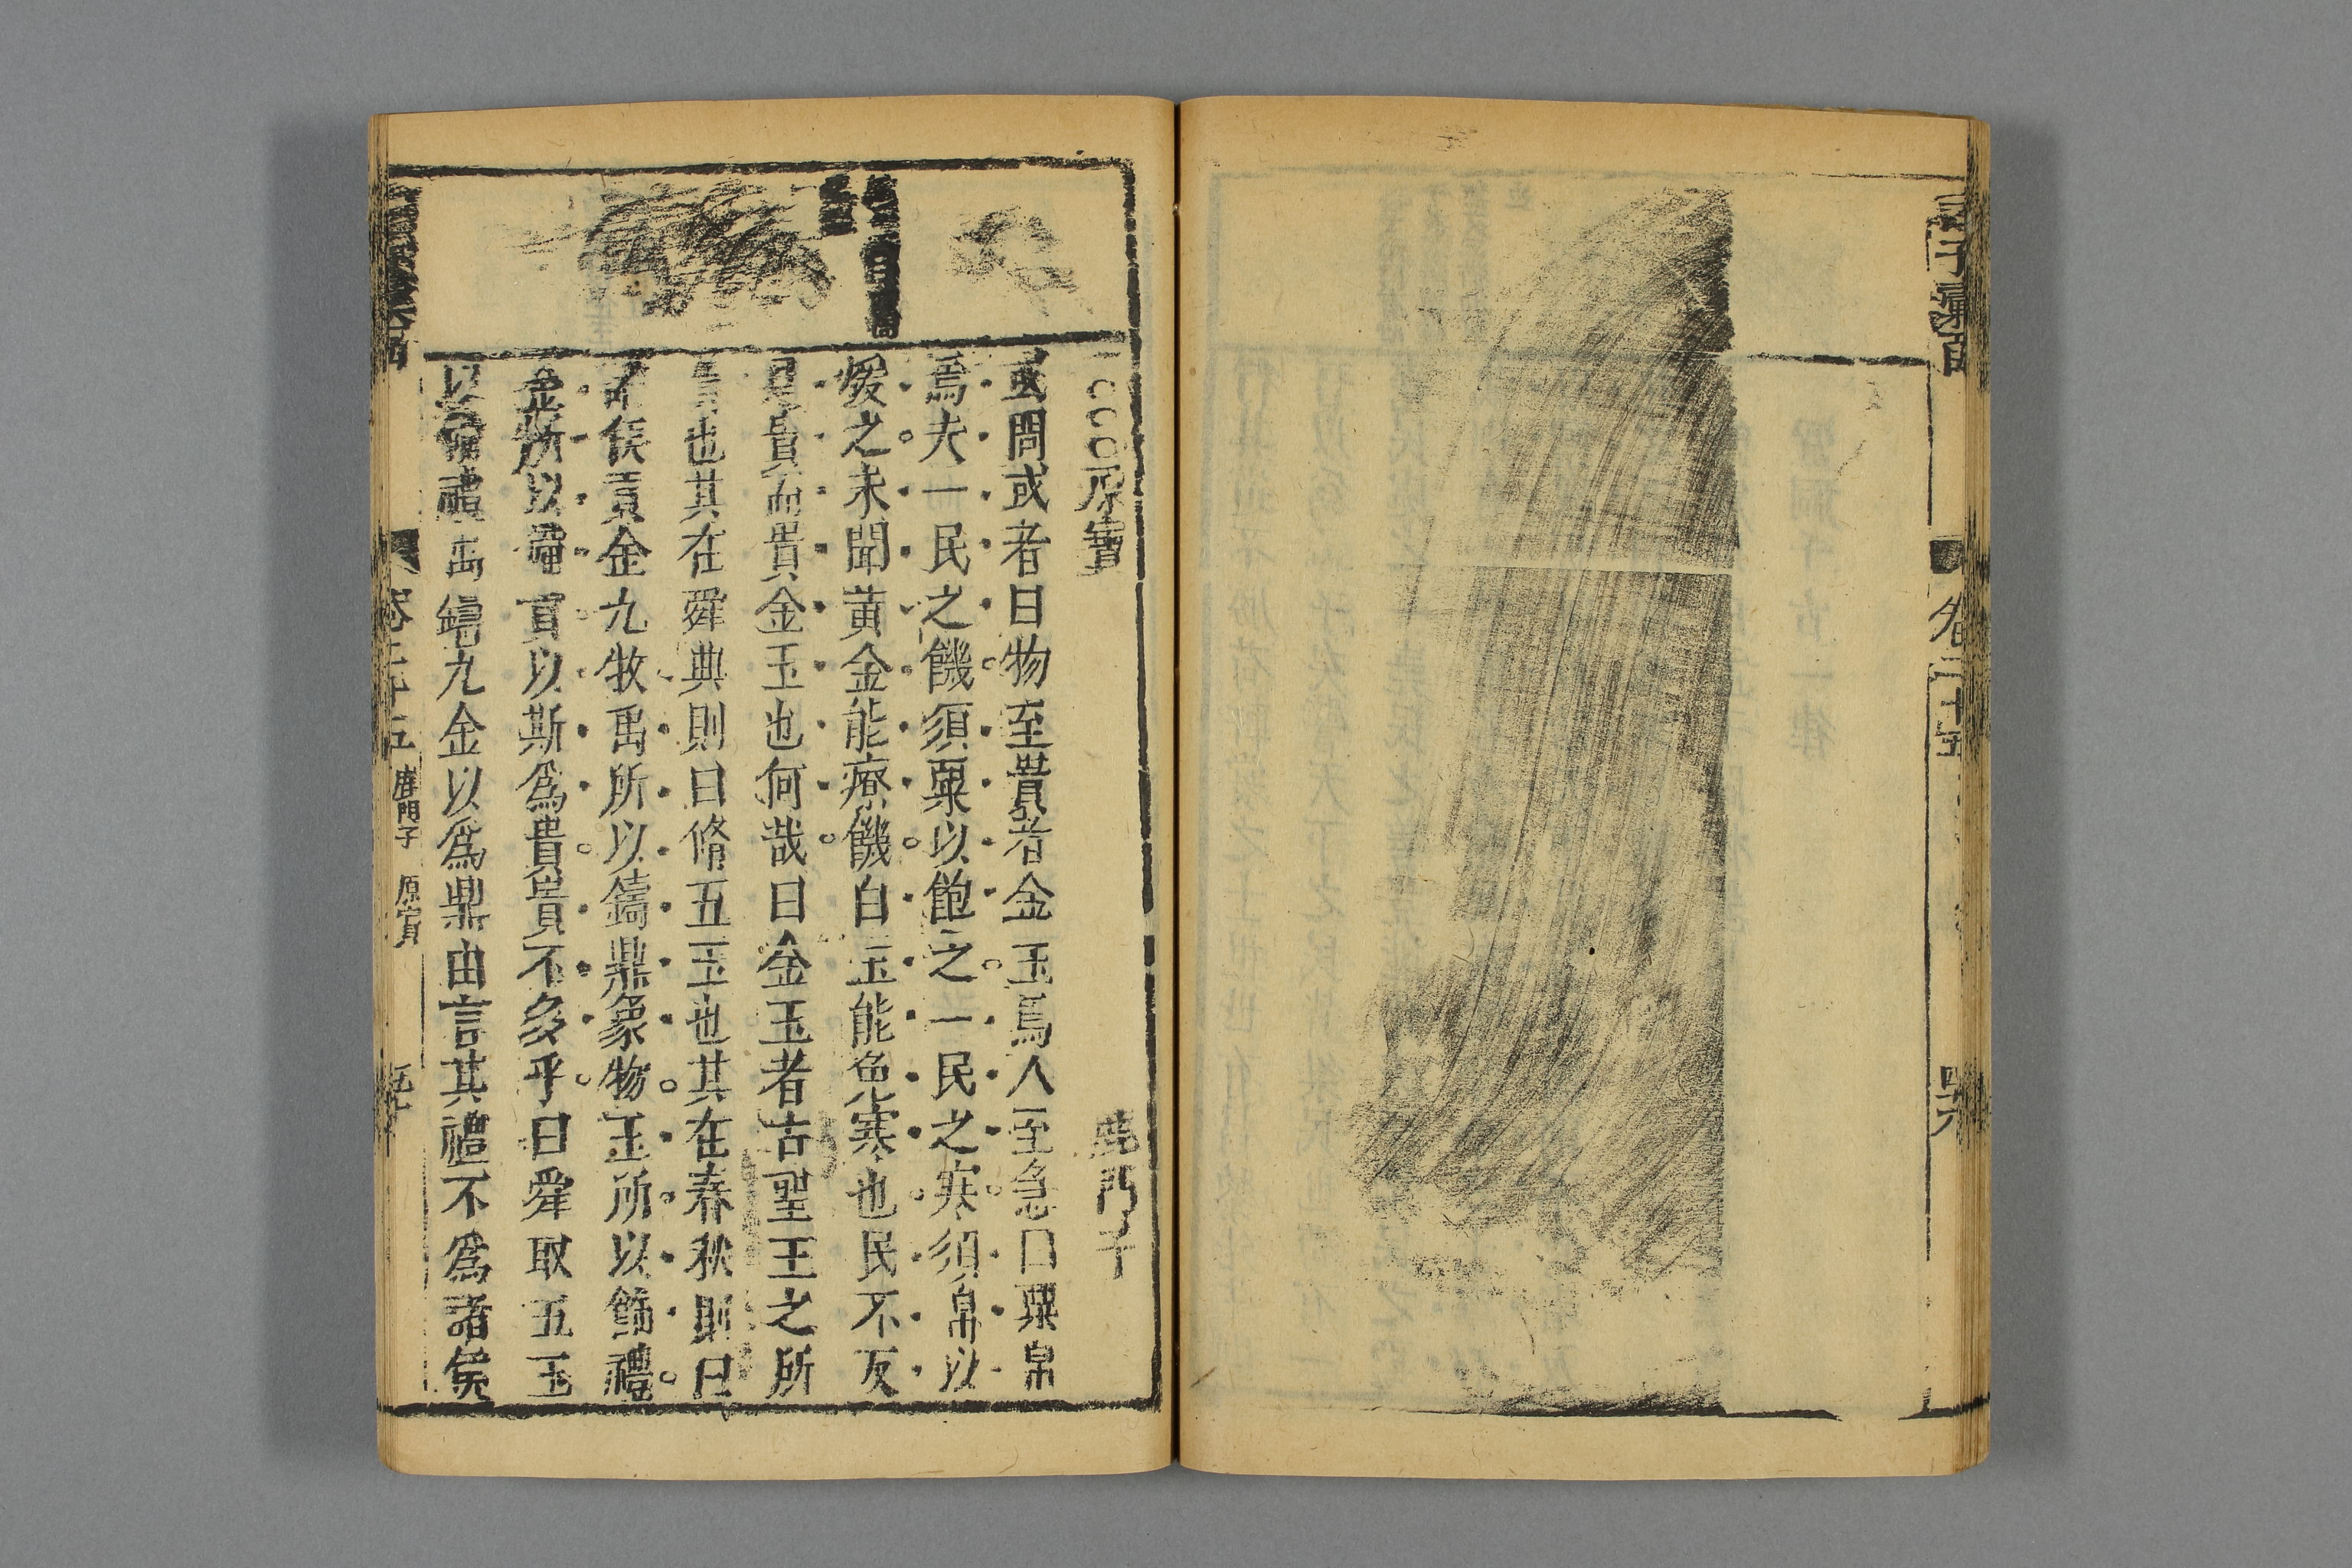 子彙函
卷二十五
〇〇〇原寶
鹿門子
或問或者曰物至貴者金玉焉人至急口粟帛
焉夫一民之饑須粟以飽之一民之寒須帛以
煖之未聞黃金能療饑白玉能免寒也民不反
是貴而貴金玉也何哉曰金玉者古聖王之所
貴也其在舜典則曰脩五玉也其在春秋則曰
諸侯貢金九牧禹所以鑄鼎象物玉所以餙禮
金所以備貢以斯爲貴貴不多乎曰舜取五玉
以備禮禹鑄九金以爲鼎由言其禮不爲諸侯
卷二十五
鹿門子
原寶